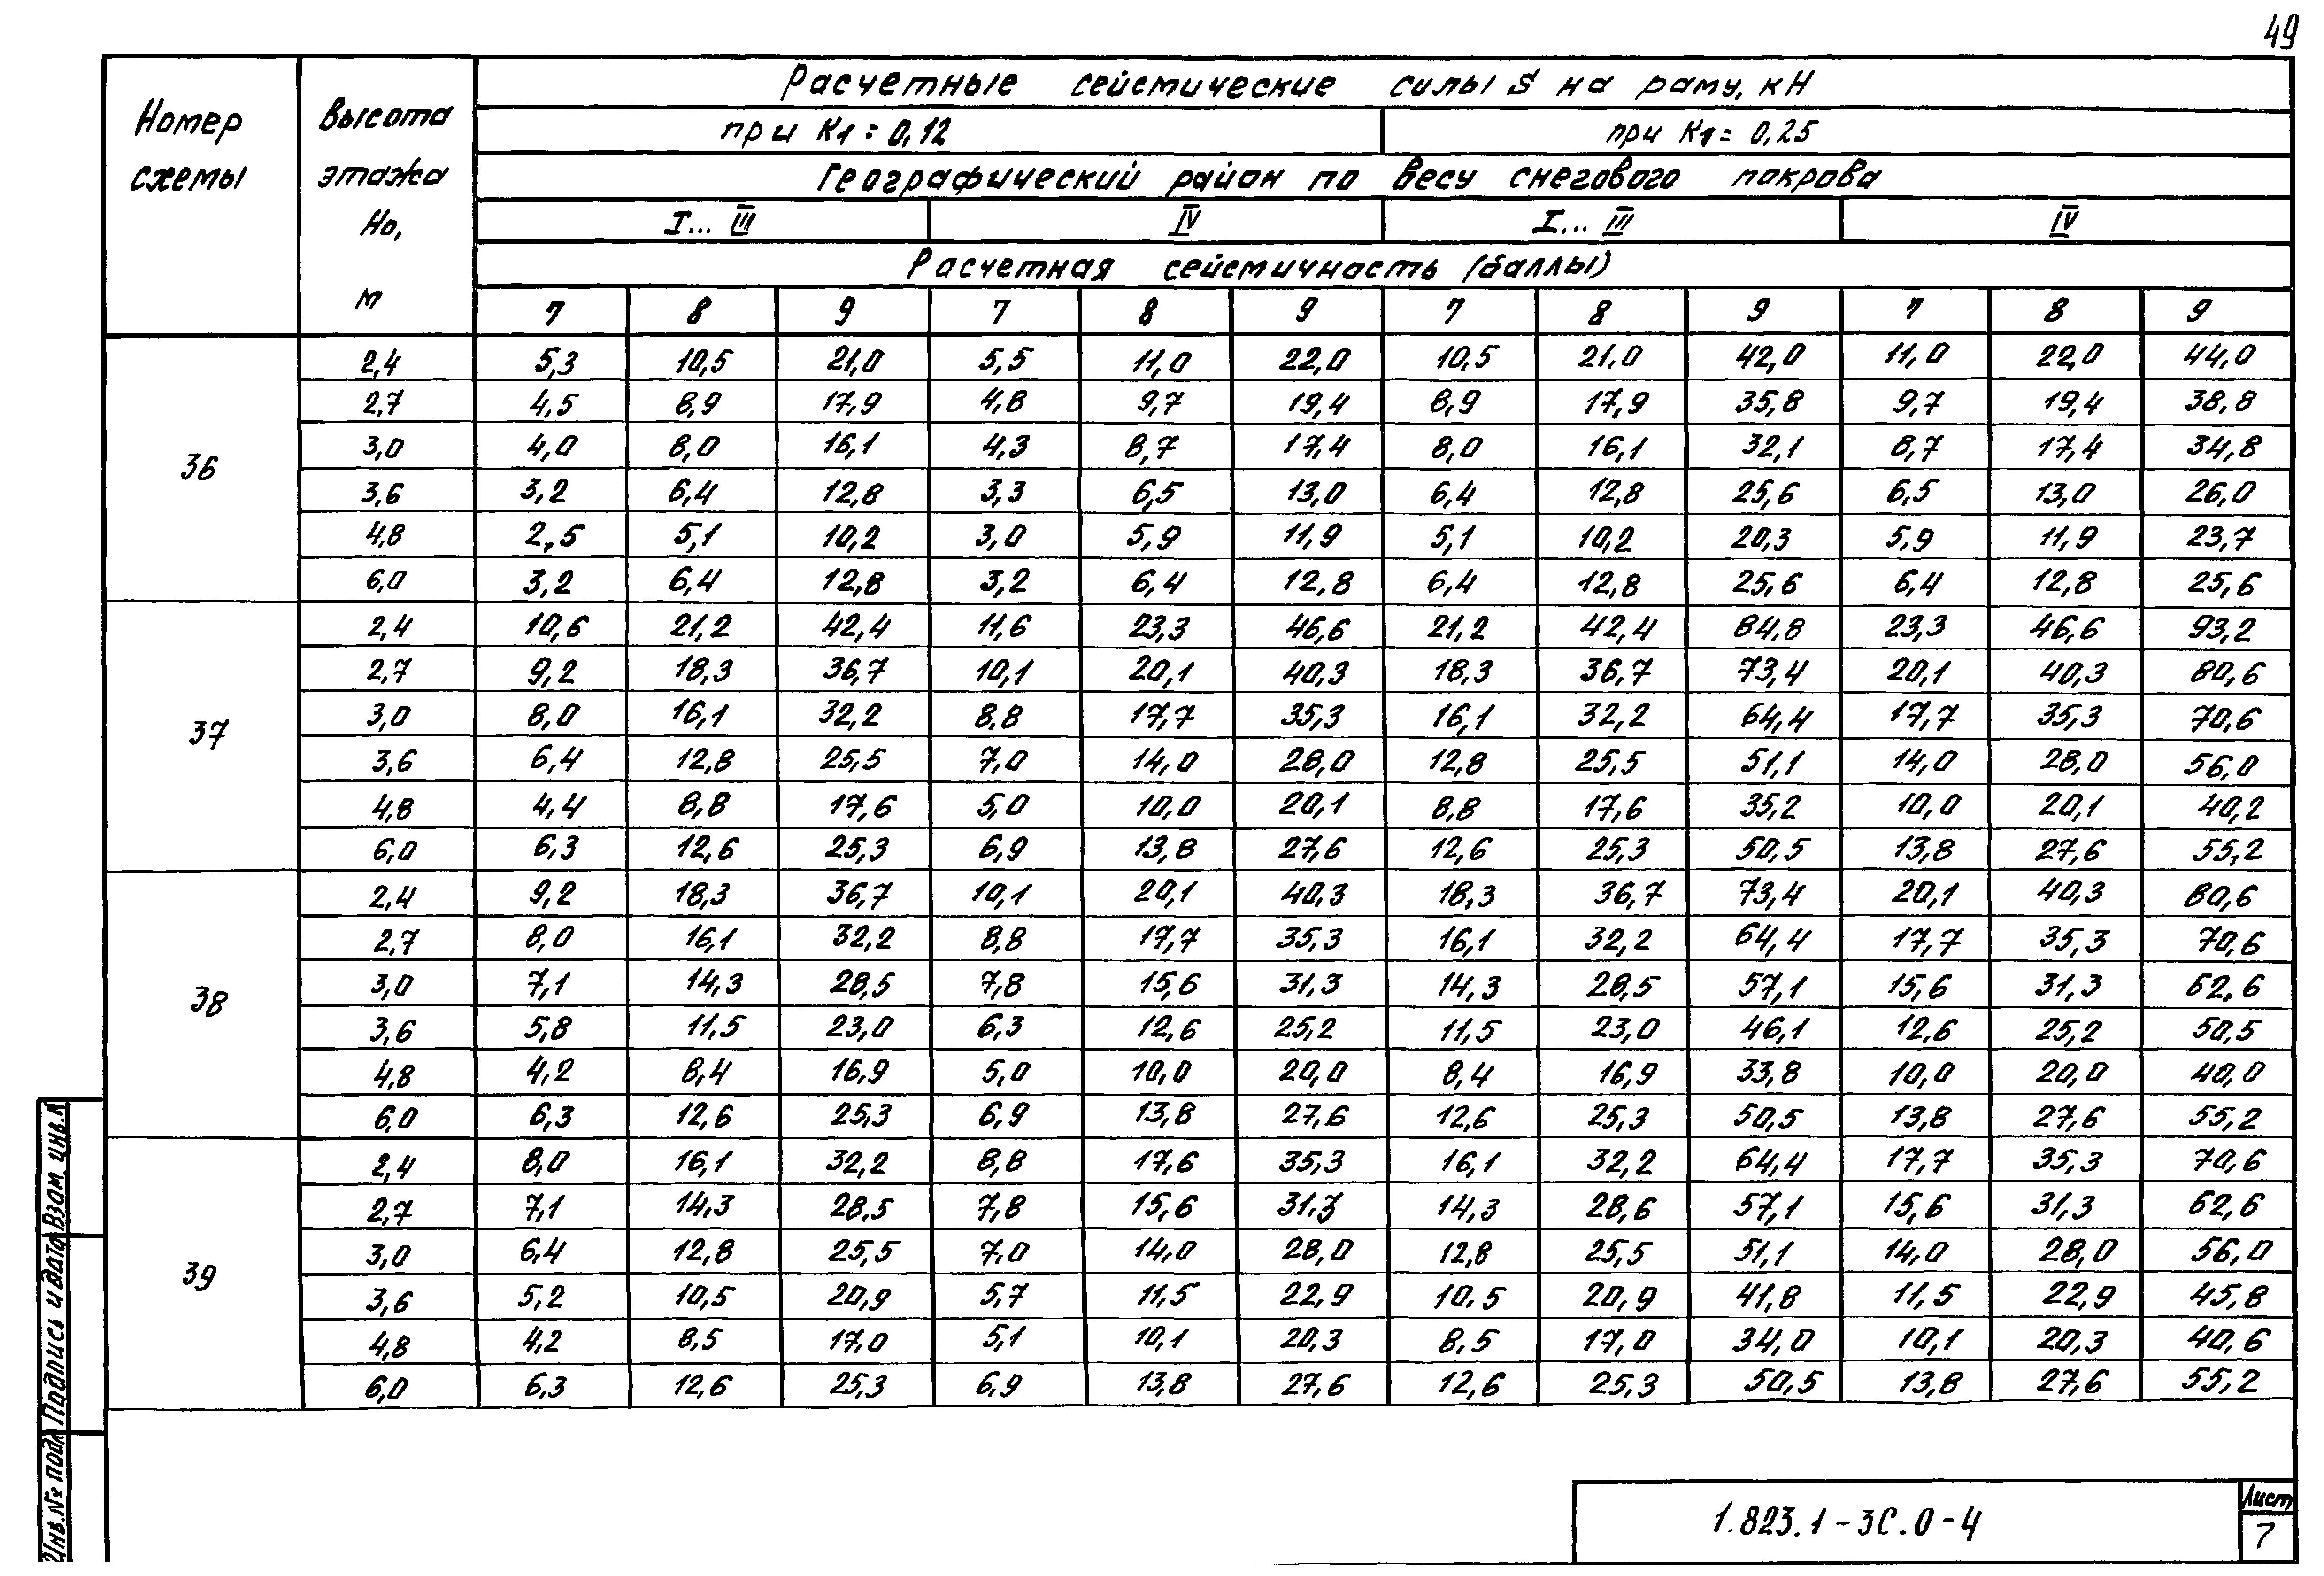 49
Номер схемы
Высота этажа Hо, м
Расчетные сейсмические силы S на раму, кН
при K1 = 0,12 при K1 = 0,25
Географический район по весу снегового покрова
I... III IV I... III IV
Расчетная сейсмичность (баллы)
7 8 9 7 8 9 7 8 9 7 8 9
36
2,4 5,3 10,5 21,0 5,5 11,0 22,0 10,5 21,0 42,0 11,0 22,0 44,0
2,7 4,5 8,9 17,9 4,8 9,7 19,4 8,9 17,9 35,8 9,7 19,4 38,8
3,0 4,0 8,0 16,1 4,3 8,7 17,4 8,0 16,1 32,1 8,7 17,4 34,8
3,6 3,2 6,4 12,8 3,3 6,5 13,0 6,4 12,8 25,6 6,5 13,0 26,0
4,8 2,5 5,1 10,2 3,0 5,9 11,9 5,1 10,2 20,3 5,9 11,9 23,7
6,0 3,2 6,4 12,8 3,2 6,4 12,8 6,4 12,8 25,6 6,4 12,8 25,6
37
2,4 10,6 21,2 42,4 11,6 23,3 46,6 21,2 42,4 84,8 23,3 46,6 93,2
2,7 9,2 18,3 36,7 10,1 20,1 40,3 18,3 36,7 73,4 20,1 40,3 80,6
3,0 8,0 16,1 32,2 8,8 17,7 35,3 16,1 32,2 64,4 17,7 35,3 70,6
3,6 6,4 12,8 25,5 7,0 14,0 28,0 12,8 25,5 51,1 14,0 28,0 56,0
4,8 4,4 8,8 17,6 5,0 10,0 20,1 8,8 17,6 35,2 10,0 20,1 40,2
6,0 6,3 12,6 25,3 6,9 13,8 27,6 12,6 25,3 50,5 13,8 27,6 55,2
38
2,4 9,2 18,3 36,7 10,1 20,1 40,3 18,3 36,7 73,4 20,1 40,3 80,6
2,7 8,0 16,1 32,2 8,8 17,7 35,3 16,1 32,2 64,4 17,7 35,3 70,6
3,0 7,1 14,3 28,5 7,8 15,6 31,3 14,3 28,5 57,1 15,6 31,3 62,6
3,6 5,8 11,5 23,0 6,3 12,6 25,2 11,5 23,0 46,1 12,6 25,2 50,5
4,8 4,2 8,4 16,9 5,0 10,0 20,0 8,4 16,9 33,8 10,0 20,0 40,0
6,0 6,3 12,6 25,3 6,9 13,8 27,6 12,6 25,3 50,5 13,8 27,6 55,2
39
2,4 8,0 16,1 32,2 8,8 17,6 35,3 16,1 32,2 64,4 17,7 35,3 70,6
2,7 7,1 14,3 28,5 7,8 15,6 31,3 14,3 28,6 57,1 15,6 31,3 62,6
3,0 6,4 12,8 25,5 7,0 14,0 28,0 12,8 25,5 51,1 14,0 28,0 56,0
3,6 5,2 10,5 20,9 5,7 11,5 22,9 10,5 20,9 41,8 11,5 22,9 45,8
4,8 4,2 8,5 17,0 5,1 10,1 20,3 8,5 17,0 34,0 10,1 20,3 40,6
6,0 6,3 12,6 25,3 6,9 13,8 27,6 12,6 25,3 50,5 13,8 27,6 55,2
Инв.№ подл
Подпись и дата
Взам. инв.№
1.823.1-3С.0-4
Лист
7